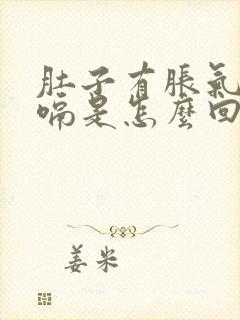 肚子有脹氣
嗝是怎麼回
姜米